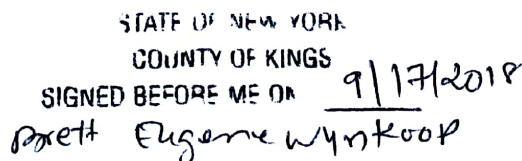 STATE OF NEW YORK
COUNTY OF KINGS
SIGNED BEFORE ME ON 9/17/2018
Brett Eugene Wynkoop